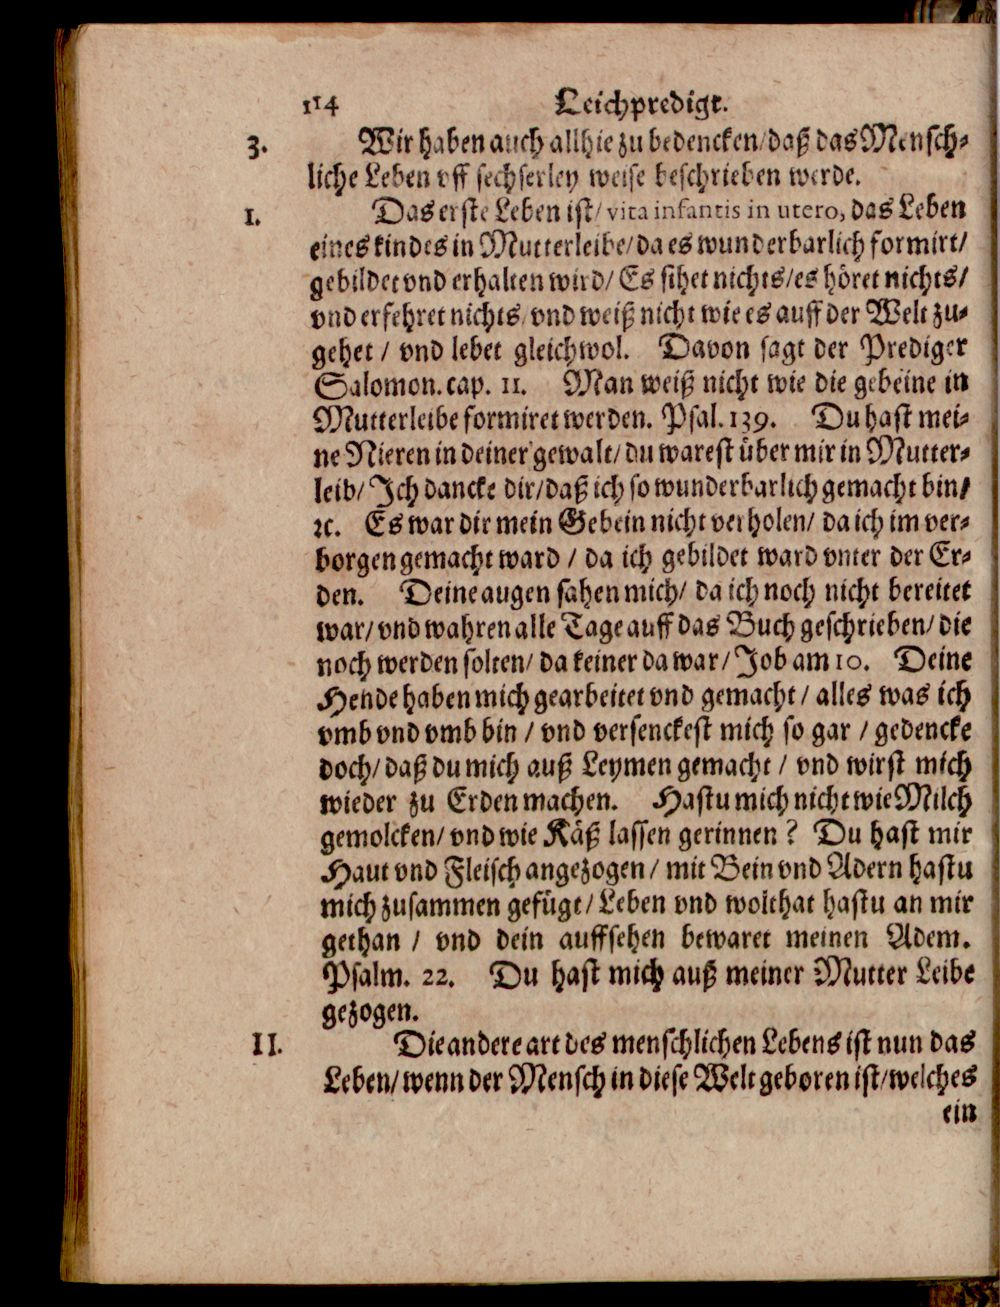 114 Leichpredigt.
3. Wir haben auch allhie zu bedencken/ daß das Mensch-
liche Leben vff sechserley weise beschrieben werde.
1. Das erste Leben ist/ vita infantis in utero, das Leben
eines kindes in Mutterleibe/ da es wunderbarlich formirt/
gebildet vnd erhalten wird/ Es sihet nichts/ es höret nichts/
vnd erfehret nichts/ vnd weiß nicht wie es auff der Welt zu-
gehet / vnd lebet gleichwol. Davon sagt der Prediger
Salomon. cap. 11. Man weiß nicht wie die gebeine in
Mutterleibe formiret werden. Psal. 139. Du hast mei-
ne Nieren in deiner gewalt/ du warest über mir in Mutter-
leib/ Ich dancke dir/ daß ich so wunderbarlich gemacht bin/
ꝛc. Es war dir mein Gebein nicht verholen/ da ich im ver-
borgen gemacht ward / da ich gebildet ward vnter der Er-
den. Deine augen sahen mich/ da ich noch nicht bereitet
war/ vnd wahren alle Tage auff das Buch geschrieben/ die
noch werden solten/ da keiner da war/ Job am 10. Deine
Hende haben mich gearbeitet vnd gemacht / alles was ich
vmb vnd vmb bin / vnd versenckest mich so gar / gedencke
doch/ daß du mich auß Leymen gemacht / vnd wirst mich
wieder zu Erden machen. Hastu mich nicht wie Milch
gemolcken/ vnd wie Käß lassen gerinnen? Du hast mir
Haut vnd Fleisch angezogen / mit Bein vnd Adern hastu
mich zusammen gefügt/ Leben vnd wolthat hastu an mir
gethan / vnd dein auffsehen bewaret meinen Adem.
Psalm. 22. Du hast mich auß meiner Mutter Leibe
gezogen.
II. Die andere art des menschlichen Lebens ist nun das
Leben/ wenn der Mensch in diese Welt geboren ist/ welches
ein